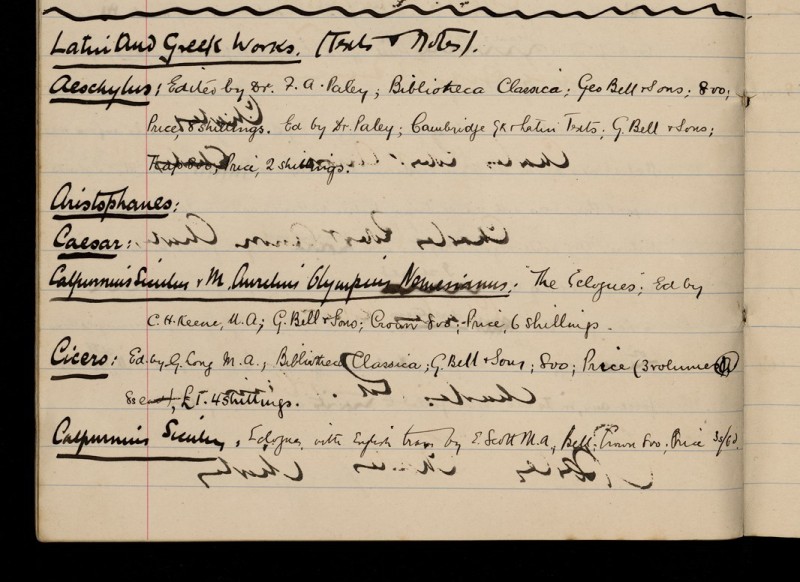 Latin And Greek Works. (Texts & Notes).
Aeschylus; Edited by Dr. F. A. Paley; Bibliotheca Classica; Geo Bell & Sons; 8vo;
Price, 8 shillings. Ed by Dr. Paley; Cambridge Gk & Latin Texts; G. Bell & Sons;
Price, 2 shillings.
Aristophanes:
Caesar:
Calpurnius Siculus & M. Aurelius Olympius Nemesianus: The Eclogues; Ed by
C. H. Keene, M.A; G. Bell & Sons; Crown 8vo; Price, 6 shillings.
Cicero: Ed. by G. Long M.A.; Bibliotheca Classica; G. Bell & Sons; 8vo; Price (3 volumes
8s each), £1. 4 shillings.
Calpurnius Siculus, Eclogues, with English trans by E. Scott M.A, Bell; Crown 8vo; Price 3s/6d.